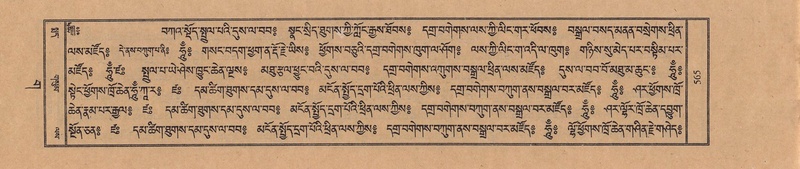 ༄༅། བཀའ་སྡོད་སྤྲུལ་པའི་དུས་ལ་བབ༔ སྣང་སྲིད་ཐུགས་ཀྱི་ཀློང་རྒྱས་ཐོབས༔ དགྲ་བགེགས་ལས་ཀྱི་ལིང་གར་ཕོབས༔ བསྒྲལ་བསད་མནན་བསྲེགས་ཕྲིན་
ལས་མཛོད༔ དེ་ནས་བཀུག་པ་ནི༔ ཧཱུྃ༔ གསང་བདག་ཕྱག་ན་རྡོ་རྗེ་ཡིས༔ ཕྱོགས་བཅུའི་དགྲ་བགེགས་ཁུག་ལ་ཤོག༔ ལས་ཀྱི་ལིང་ག་འདི་ལ་ཁུག༔ གཉིས་སུ་མེད་པར་བསྟིམ་པར་
མཛོད༔ ཧཱུྃ་ཛཿ སྤྲུལ་པ་ཡེ་ཤེས་ཁྱུང་ཆེན་ལྔས༔ མཐུ་རྩལ་ཕྱུང་བའི་དུས་ལ་བབ༔ དགྲ་བགེགས་འགུགས་བསྒྲལ་ཕྲིན་ལས་མཛོད༔ དུས་ལ་བབ་བོ་མཐུ་མ་ཆུང་༔ ཧཱུྃ༔
སྟེང་ཕྱོགས་ཁྲོ་ཆེན་ཧཱུྃ་ཀཱ་ར༔ ཛཿ དམ་ཚིག་ཐུགས་དམ་དུས་ལ་བབ༔ མངོན་སྤྱོད་དྲག་པོའི་ཕྲིན་ལས་ཀྱིས༔ དགྲ་བགེགས་བཀུག་ནས་བསྒྲལ་བར་མཛོད༔ ཧཱུྃ༔ ཤར་ཕྱོགས་ཁྲོ་
ཆེན་རྣམ་པར་རྒྱལ༔ ཛཿ དམ་ཚིག་ཐུགས་དམ་དུས་ལ་བབ༔ མངོན་སྤྱོད་དྲག་པོའི་ཕྲིན་ལས་ཀྱིས༔ དགྲ་བགེགས་བཀུག་ནས་བསྒྲལ་བར་མཛོད༔ ཧཱུྃ༔ ཤར་ལྷོར་ཁྲོ་ཆེན་དབྱུག་
སྔོན་ཅན༔ ཛཿ དམ་ཚིག་ཐུགས་དམ་དུས་ལ་བབ༔ མངོན་སྤྱོད་དྲག་པོའི་ཕྲིན་ལས་ཀྱིས༔ དགྲ་བགེགས་བཀུག་ནས་བསྒྲལ་བར་མཛོད༔ ཧཱུྃ༔ ལྷོ་ཕྱོགས་ཁྲོ་ཆེན་གཤིན་རྗེ་གཤེད༔
565